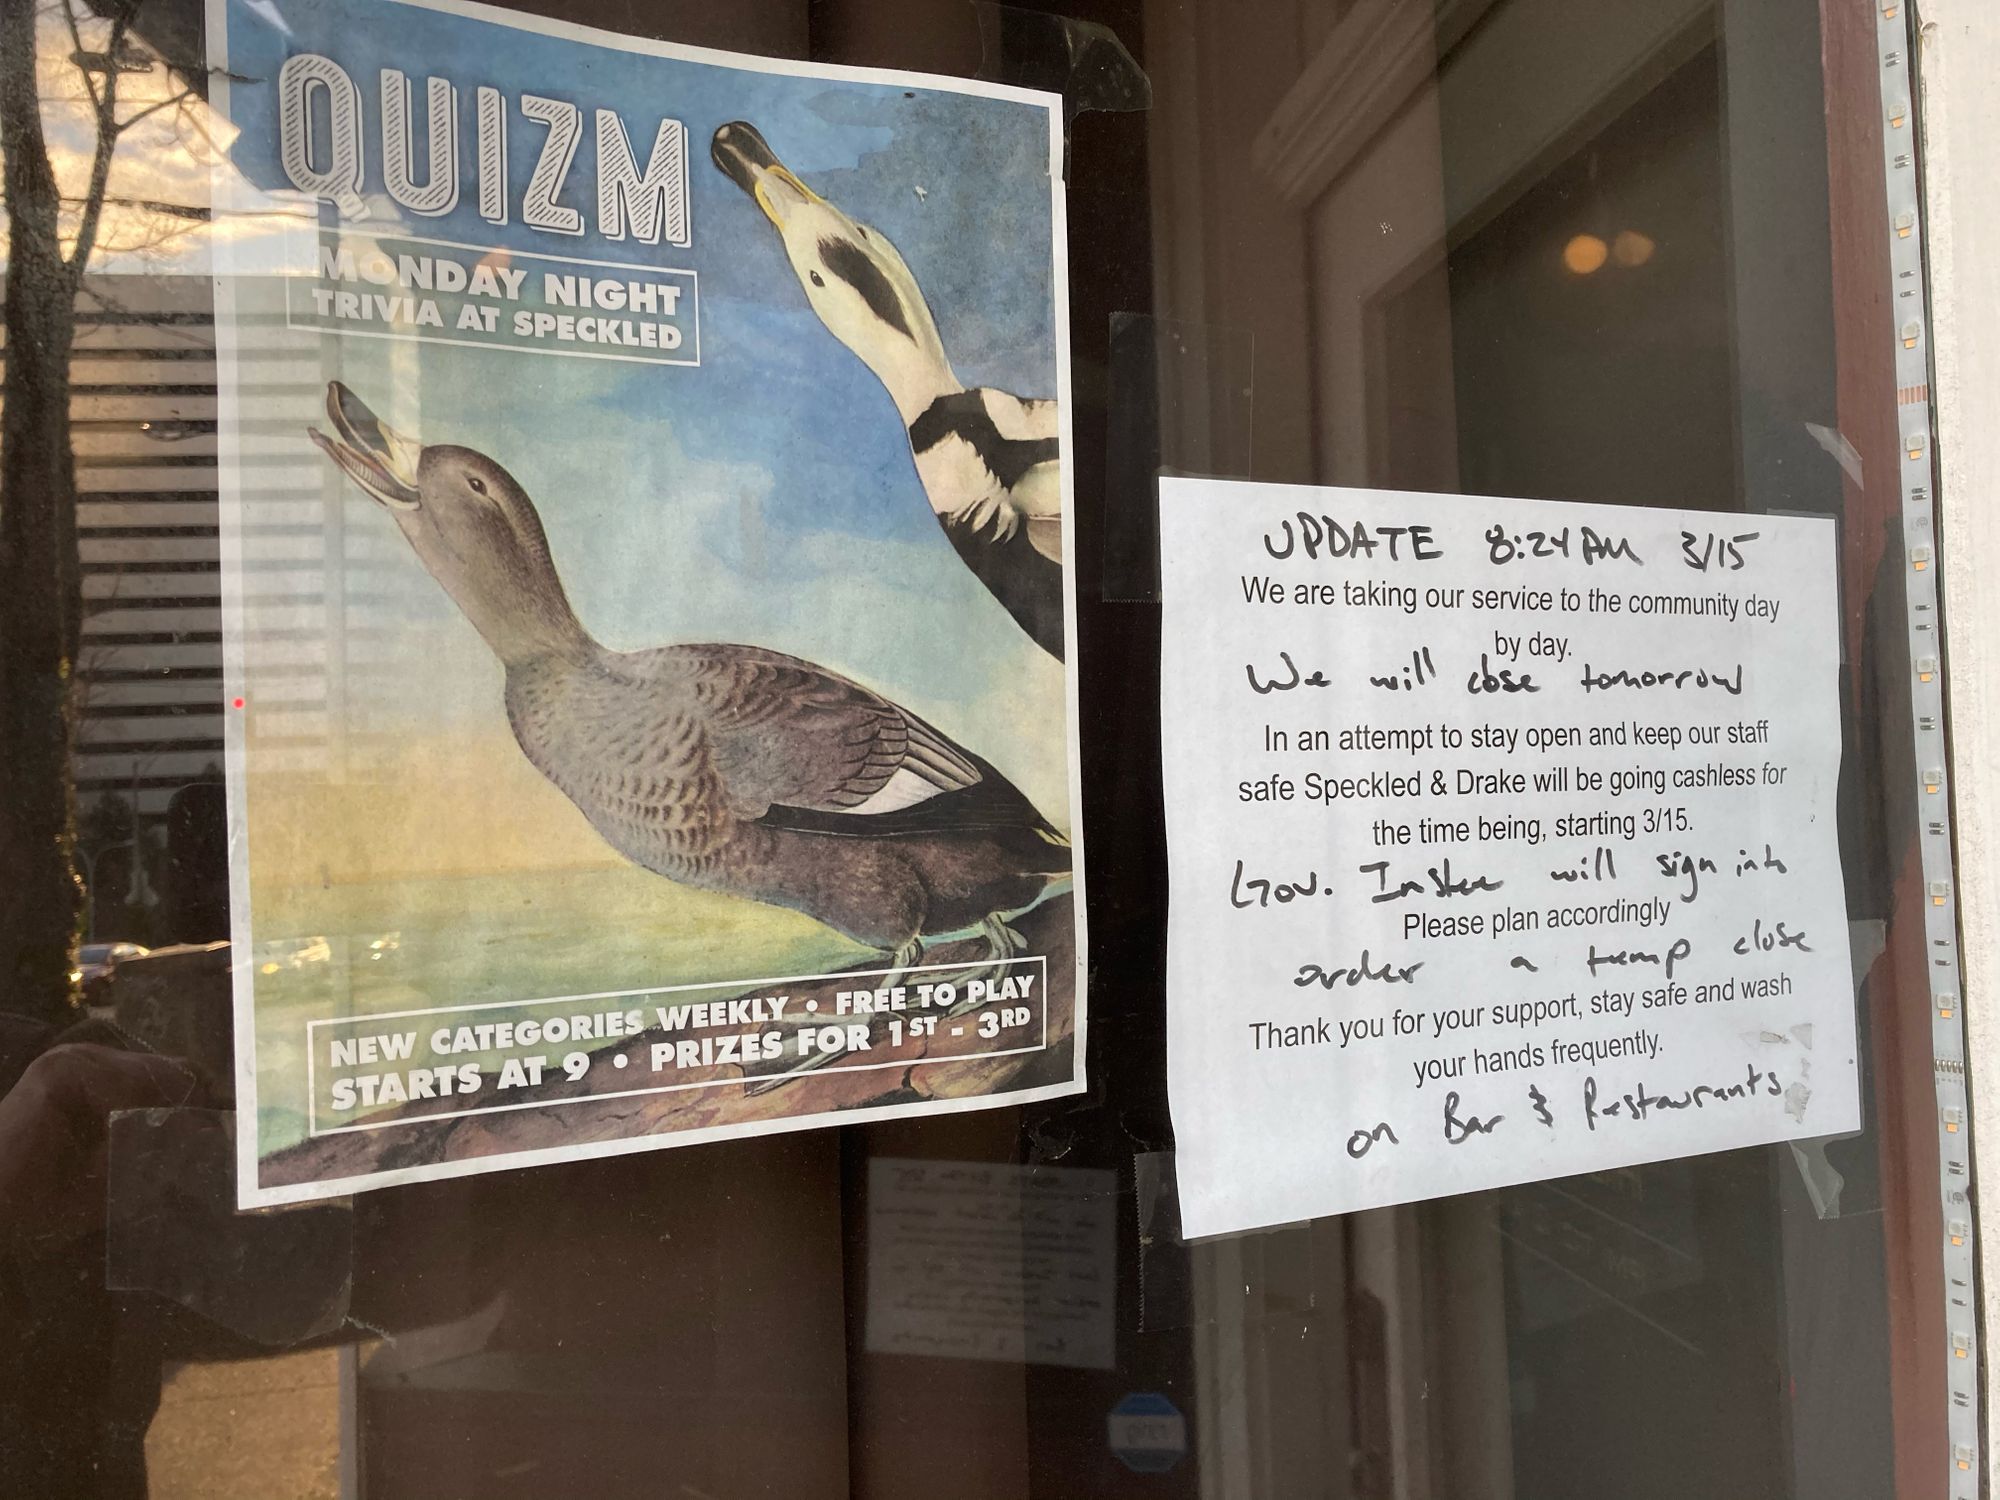 QUIZM
MONDAY NIGHT
TRIVIA AT SPECKLED
NEW CATEGORIES WEEKLY • FREE TO PLAY
STARTS AT 9 • PRIZES FOR 1ST - 3RD
UPDATE 8:24 AM 3/15
We are taking our service to the community day
by day.
We will close tomorrow
In an attempt to stay open and keep our staff
safe Speckled & Drake will be going cashless for
the time being, starting 3/15.
Gov. Inslee will sign into
Please plan accordingly
order a temp close
Thank you for your support, stay safe and wash
your hands frequently.
on Bar & Restaurants